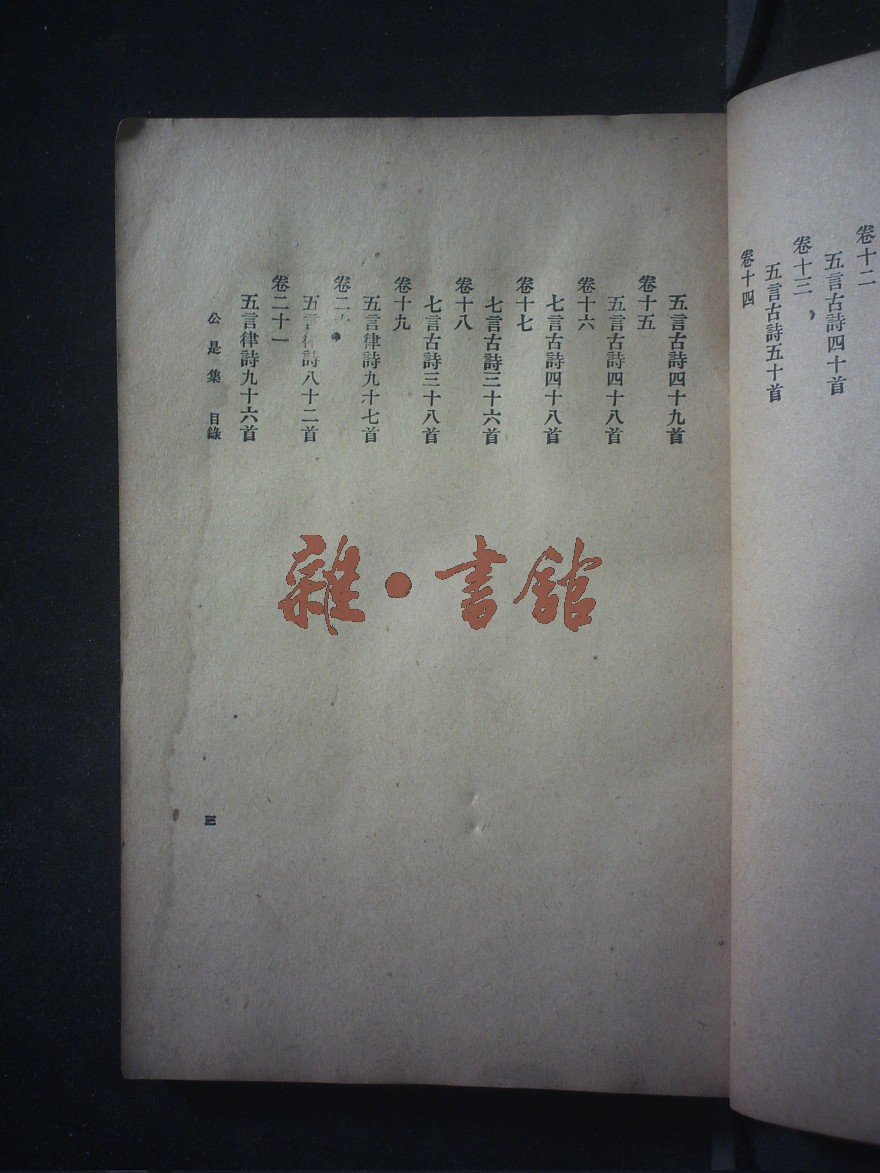 卷十二
五言古詩四十首
卷十三
五言古詩五十首
卷十四
五言古詩四十九首
卷十五
五言古詩四十八首
卷十六
七言古詩四十八首
卷十七
七言古詩三十六首
卷十八
七言古詩三十八首
卷十九
五言律詩九十七首
卷二
五言律詩八十二首
卷二十一
五言律詩九十六首
公是集 目錄
三
雜·書館